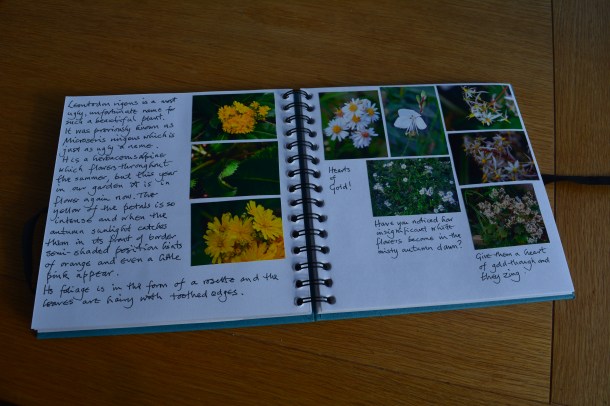 Leontodon rigens is a most
ugly, unfortunate name for
such a beautiful plant.
It was previously known as
Microseris ringens which is
just as ugly a name.
It is a herbaceous alpine
which flowers throughout
the summer, but this year
in our garden it is in
flower again now. The
yellow of the petals is so
intense and when the
autumn sunlight catches
them in its front of border
semi-shaded position hints
of orange and even a little
pink appear.
Its foliage is in the form of a rosette and the
leaves are hairy with toothed edges.
Hearts
of
Gold!
Have you noticed how
insignificant white
flowers become in the
misty autumn dawn?
Give them a heart
of gold though and
they zing